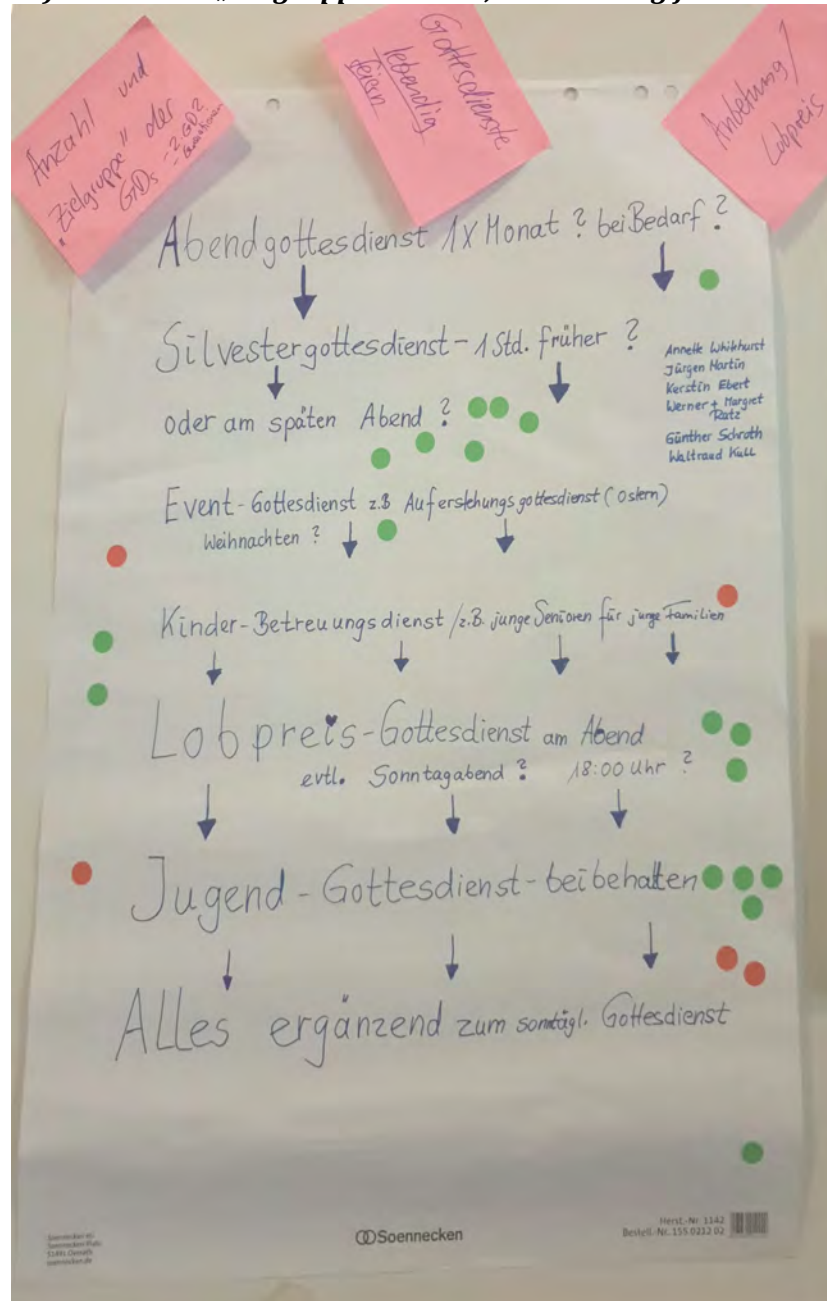 Anzahl und
„Zielgruppe" der
GDs - 2. GD?
- Generationen
Gottesdienste
lebendig
feiern
Anbetung/
Lobpreis
Abendgottesdienst 1x Monat ? bei Bedarf ?
Silvestergottesdienst - 1 Std. früher ?
oder am späten Abend ?
Annette Whithurst
Jürgen Martin
Kerstin Ebert
Werner + Margret
Ratz
Günther Schroth
Waltraud Kull
Event-Gottesdienst z.B Auferstehungsgottesdienst (Ostern)
Weihnachten ?
Kinder-Betreuungsdienst /z.B. junge Senioren für junge Familien
Lobpreis-Gottesdienst am Abend
evtl. Sonntagabend ? 18:00 Uhr ?
Jugend-Gottesdienst-beibehalten
Alles ergänzend zum sonntägl. Gottesdienst
Soennecken
Herst.-Nr. 1142
Bestell.-Nr. 155 0212 02